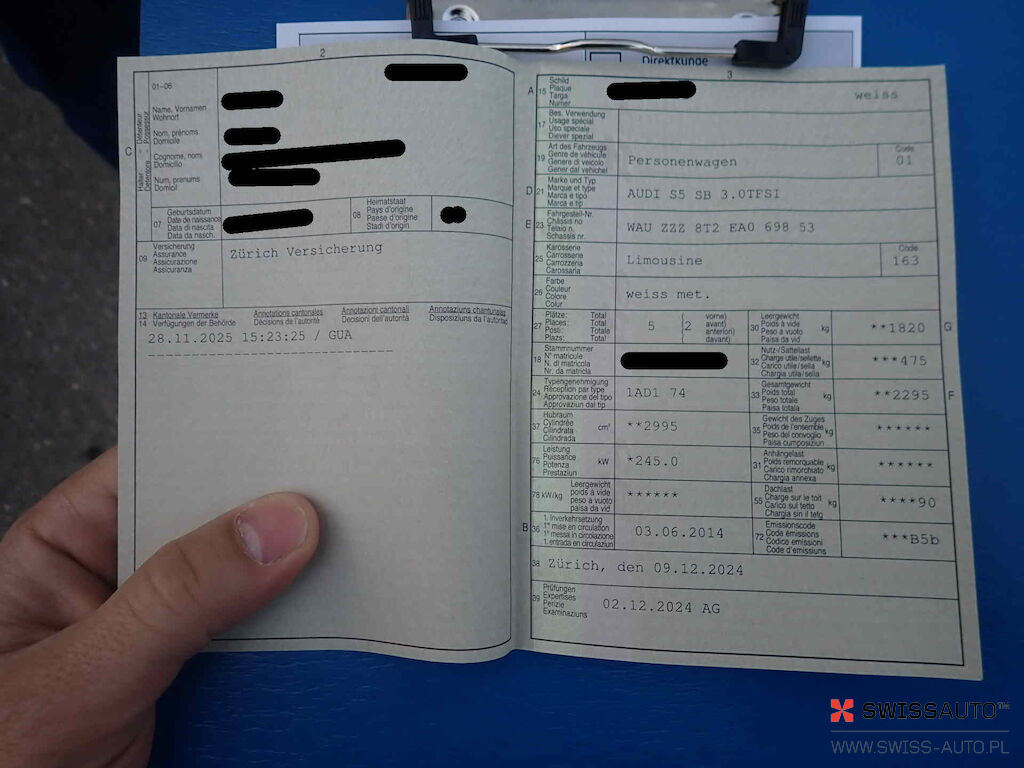 Direktkunde
2
01-06
C
Halter - Détenteur
Detentore - Possessur
Name, Vornamen
Wohnort
Nom, prénoms
Domicile
Cognome, nomi
Domicilio
Num, prenums
Domicil
07
Geburtsdatum
Date de naissance
Data di nascita
Data da nasch.
08
Heimatstaat
Pays d'origine
Paese d'origine
Stadi d'origin
09
Versicherung
Assurance
Assicurazione
Assicuranza
Zürich Versicherung
13
14
Kantonale Vermerke
Verfügungen der Behörde
Annotations cantonales
Décisions de l'autorité
Annotazioni cantonali
Decisioni dell'autorità
Annotaziuns chantunalas
Disposiziuns da l'autoritad
28.11.2025 15:23:25 / GUA
3
A
15
Schild
Plaque
Targa
Numer
weiss
17
Bes. Verwendung
Usage spécial
Uso speciale
Diever spezial
19
Art des Fahrzeugs
Genre de véhicule
Genere di veicolo
Gener dal vehichel
Personenwagen
Code
01
D
21
Marke und Typ
Marque et type
Marca e tipo
Marca e tip
AUDI S5 SB 3.0TFSI
E
23
Fahrgestell-Nr.
Châssis no
Telaio n.
Schassis nr.
WAU ZZZ 8T2 EA0 698 53
25
Karosserie
Carrosserie
Carrozzeria
Carossaria
Limousine
Code
163
26
Farbe
Couleur
Colore
Colur
weiss met.
27
Plätze: Total
Places: Total
Posti: Totale
Plazs: Total
5
(2
vorne)
avant)
anteriori)
davant)
30
Leergewicht
Poids à vide
Peso a vuoto
Paisa da vid
kg
**1820
G
18
Stammnummer
N° matricule
N. di matricola
Nr. da matricla
32
Nutz-/Sattellast
Charge utile/sellette
Carico utile/sella
Chargia utila/sella
kg
***475
24
Typengenehmigung
Réception par type
Approvazione del tipo
Approvaziun dal tip
1AD1 74
33
Gesamtgewicht
Poids total
Peso totale
Paisa totala
kg
**2295
F
37
Hubraum
Cylindrée
Cilindrata
Cilindrada
cm³
**2995
35
Gewicht des Zuges
Poids de l'ensemble
Peso del convoglio
Paisa cumposiziun
kg
******
76
Leistung
Puissance
Potenza
Prestaziun
kW
*245.0
31
Anhängelast
Poids remorquable
Carico rimorchiato
Chargia annexa
kg
******
78 kW/kg
Leergewicht
poids à vide
peso a vuoto
paisa da vid
******
55
Dachlast
Charge sur le toit
Carico sul tetto
Chargia sin il tetg
kg
****90
B
36
1. Inverkehrsetzung
1re mise en circulation
1a messa in circolazione
1. entrada en circulaziun
03.06.2014
72
Emissionscode
Code émissions
Codice emissioni
Code d'emissiuns
***B5b
38
Zürich, den 09.12.2024
39
Prüfungen
Expertises
Perizie
Examinaziuns
02.12.2024 AG
SWISSAUTO™
WWW.SWISS-AUTO.PL